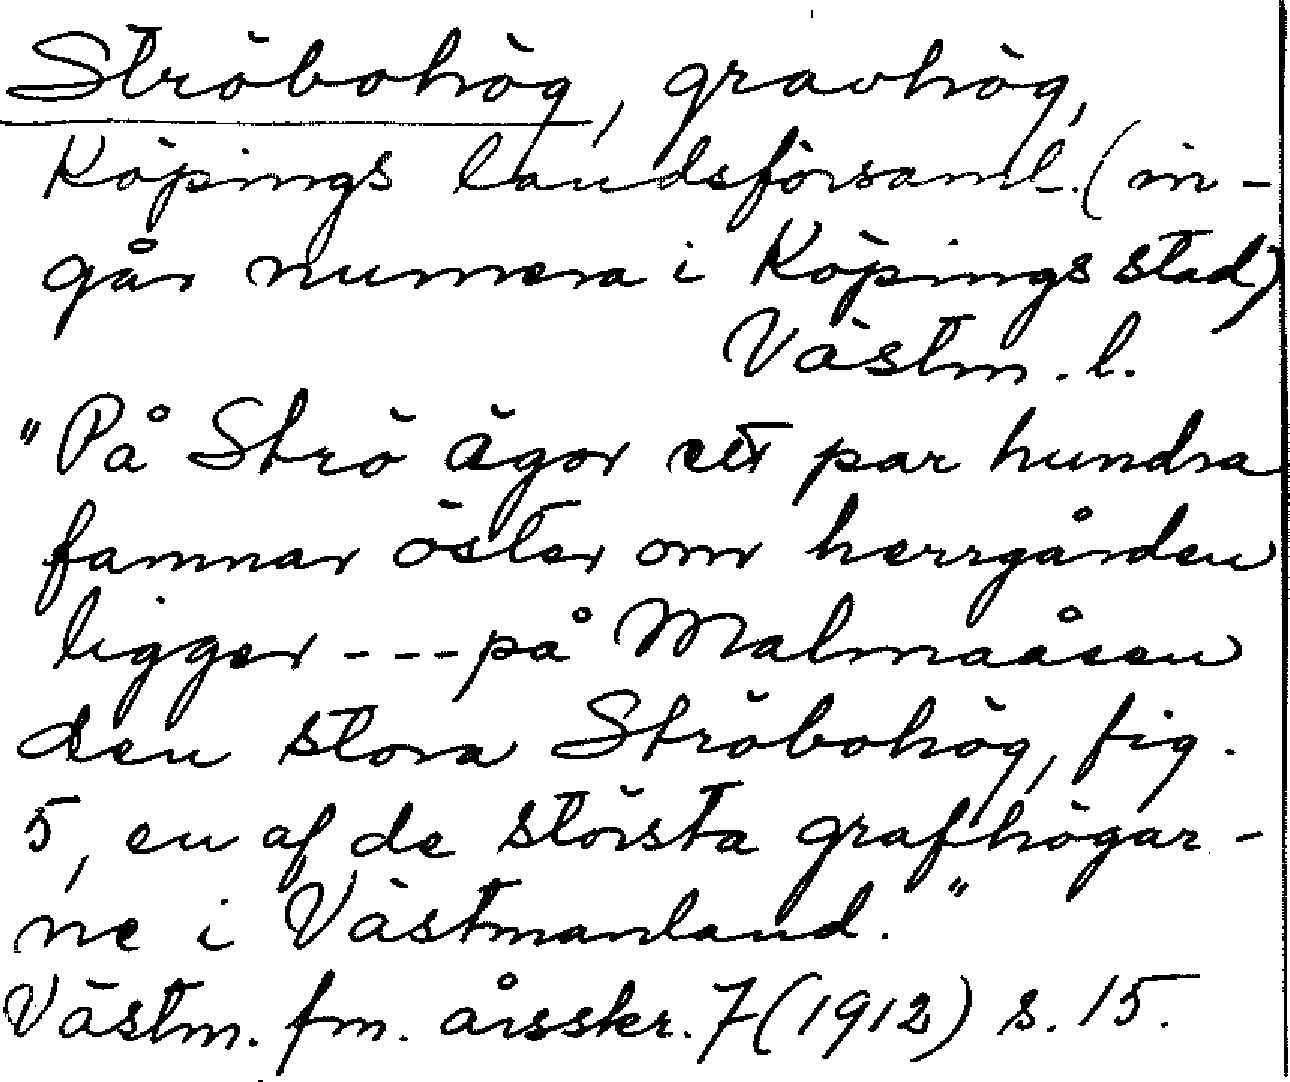 Ströbohög, gravhög,
Köpings landsförsaml. (in-
går numera i Köpings stad)
Västm. l.
"På Strö ägor ett par hundra
famnar öster om herrgården
ligger --- på Malmaåsen
den stora Ströbohög, fig.
5, en af de största grafhögar-
ne i Västmanland."
Västm. fm. årsskr. 7 (1912) s. 15.